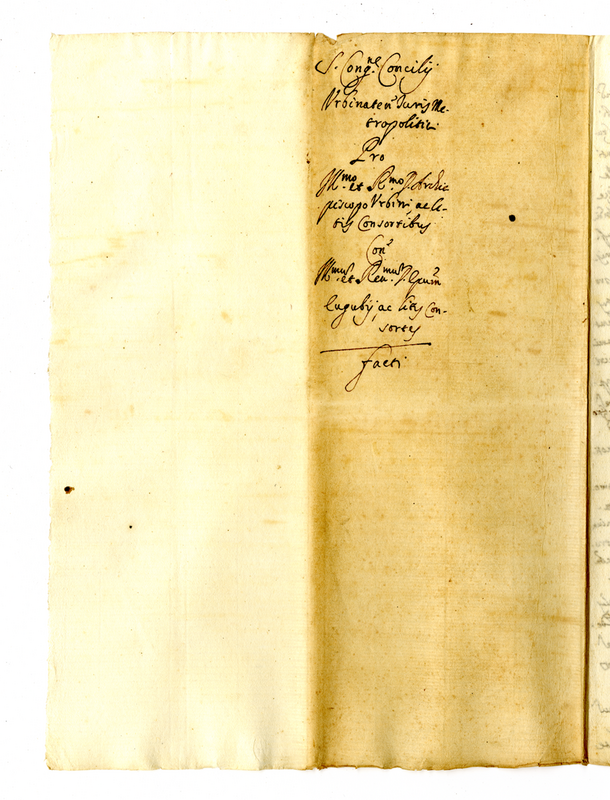 S. Cong.ne Concilij
Vrbinaten Juris Me-
tropolitici
Pro
Ill.mo et R.mo D. Archie
piscopo Vrbini ac li-
tis Consortibus
Con
Ill.mum et Reu.mum D. Epum
Eugubij ac litis Con-
sortes
facti